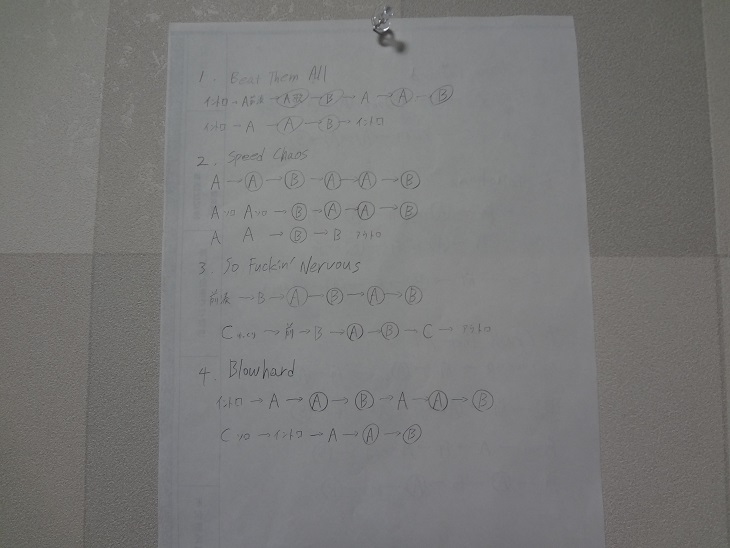 1. Beat Them All
イントロ → A前渡 → Ⓐ → Ⓑ → A → Ⓐ → Ⓑ
イントロ → A → Ⓐ → Ⓑ → イントロ
2. Speed Chaos
A → Ⓐ → Ⓑ → Ⓐ → Ⓐ → Ⓑ
Aソロ Aソロ → Ⓑ → Ⓐ → Ⓐ → Ⓑ
A A → Ⓑ → B アウトロ
3. So Fuckin' Nervous
→ B → Ⓐ → Ⓑ → Ⓐ → Ⓑ
C → 前 → B → Ⓐ → Ⓑ → C → アウトロ
4. Blowhard
イントロ → A → Ⓐ → Ⓑ → A → Ⓐ → Ⓑ
Cソロ → イントロ → A → Ⓐ → Ⓑ